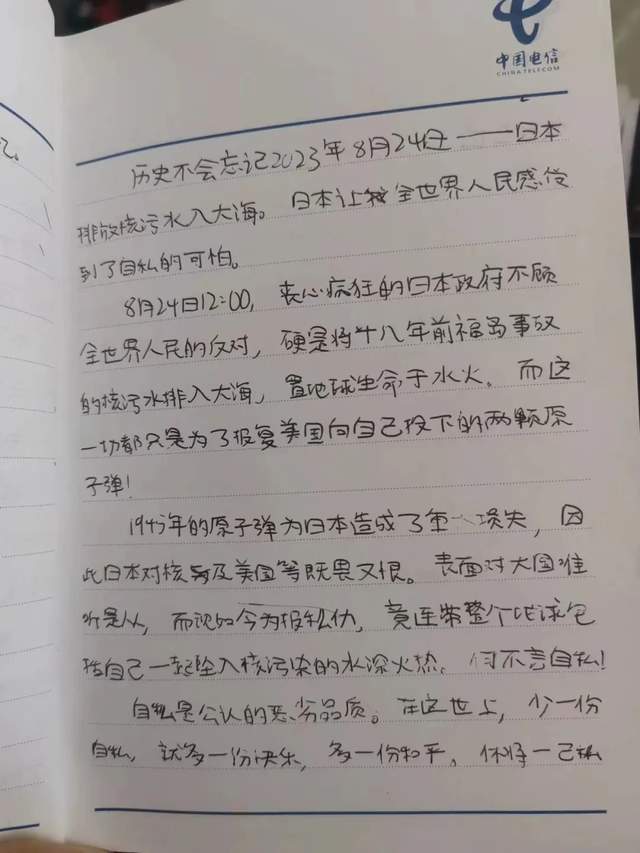 中国电信
CHINA TELECOM
记。
历史不会忘记2023年8月24日——日本
排放核污水入大海。日本让我全世界人民感受
到了自私的可怕。
8月24日12:00,丧心病狂的日本政府不顾
全世界人民的反对,硬是将十八年前福岛事故
的核污水排入大海,置地球生命于水火。而这
一切都只是为了报复美国向自己投下的两颗原
子弹!
1945年的原子弹为日本造成了重大损失,因
此日本对核弹及美国等既畏又恨。表面对大国唯
听是从,而现如今为报私仇,竟连带整个地球包
括自己一起坠入核污染的水深火热。何不言自私!
自私是公认的恶劣品质。在这世上,少一份
自私,就多一份快乐,多一份和平。休将一己私